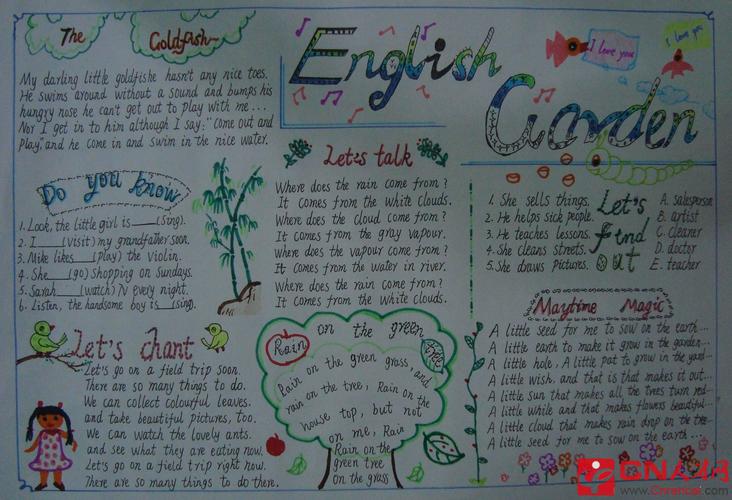 The Goldfish
My darling little goldfishe hasn't any nice toes.
He swims around without a sound and bumps his
hungry nose he can't get out to play with me...
Nor I get in to him although I say: "Come out and
Play" and he come in and swim in the nice water.
English
Garden
I love you
I love you
Do you know
1. Look, the little girl is ___ (sing).
2. I ___ (visit) my grandfather soon.
3. Mike likes ___ (play) the violin.
4. She ___ (go) shopping on Sundays.
5. Sarah ___ (watch) TV every night.
6. Listen, the handsome boy is ___ (sing).
Let's talk
Where does the rain come from?
It comes from the white clouds.
Where does the cloud come from?
It comes from the gray vapour.
Where does the vapour come from?
It comes from the water in river.
Where does the rain come from?
It comes from the white clouds.
Let's find out
1. She sells things.
2. He helps sick people.
3. He teaches lessons.
4. She cleans streets.
5. She draws pictures.
A. salesperson
B. artist
C. cleaner
D. doctor
E. teacher
Let's chant
Let's go on a field trip soon.
There are so many things to do.
We can collect colourful leaves.
and take beautiful pictures, too.
We can watch the lovely ants.
and see what they are eating now.
Let's go on a field trip right now.
There are so many things to do there.
Rain on the green tree
Rain on the green grass, and
rain on the tree, Rain on the
house top, but not
on me, Rain
Rain on the
green tree
on the grass
Maytime Magic
A little seed for me to sow on the earth...
A little earth to make it grow in the garden...
A little hole, A little pat to grow in the yard...
A little wish, and that is that makes it out...
A little sun that makes all the trees turn red...
A little while and that makes flowers beautiful...
A little cloud that makes rain drop on the tree...
A little seed for me to sow on the earth...
www.Cnrencai.com